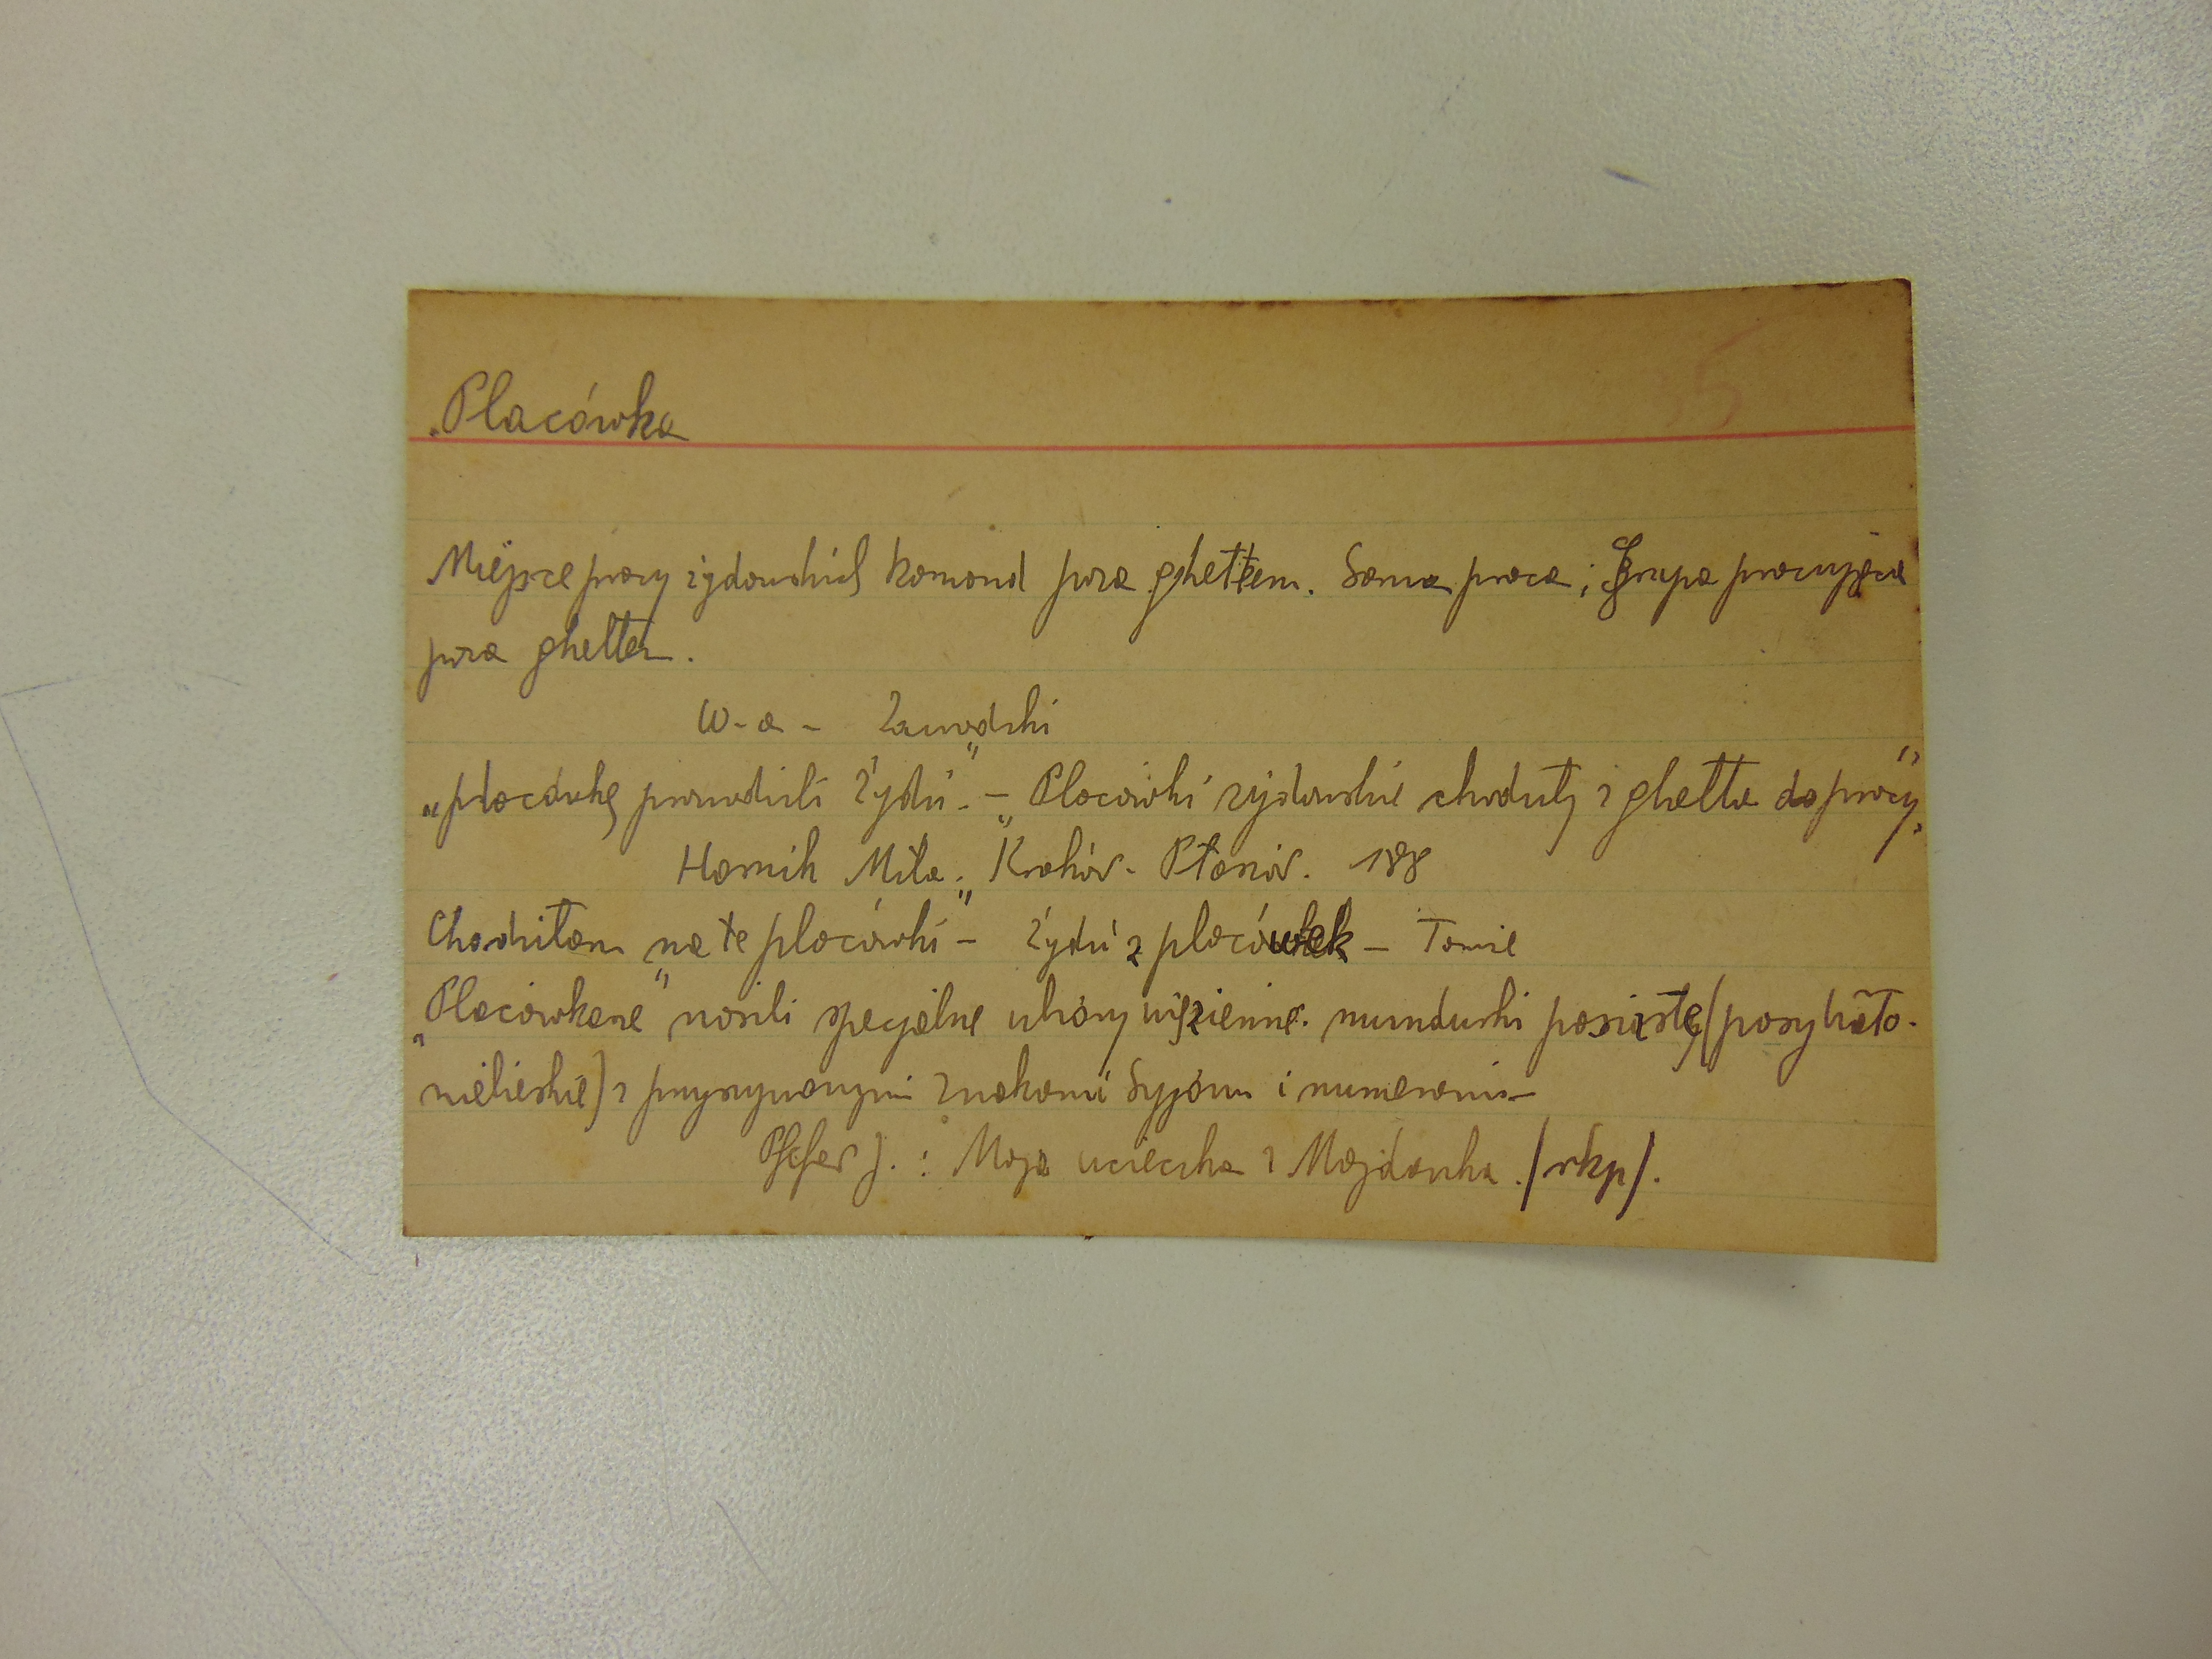 35
Placówka
Miejsce pracy żydowskich komand poza ghettem. Sama praca; Grupa pracująca
poza ghettem.
W-a - Zawodzki
"placówkę prowadzili Żydzi." - "Placówki żydowskie chodziły z ghetta do pracy",
Hornik Mila: "Kraków - Płaszów. 188
Chodziłam na te placówki" - Żydzi z placówek - Tamże
"Placówkarze" nosili specjalne ubiory więzienne. mundurki pasiaste (posybiało-
niebieskie) z przyszywanymi znakami Syjonu i numerami -
Pfefer J. : Moja ucieczka z Majdanka. /rkp/.